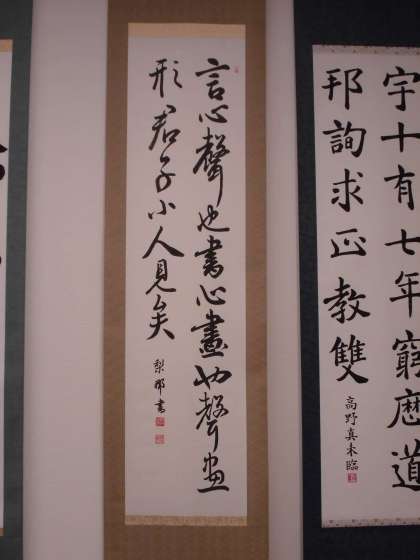 宇十有七年窮歴道
邦詢求正教雙
高野真未臨
言心聲也書心畫也聲画
形君子小人見矣
梨那書